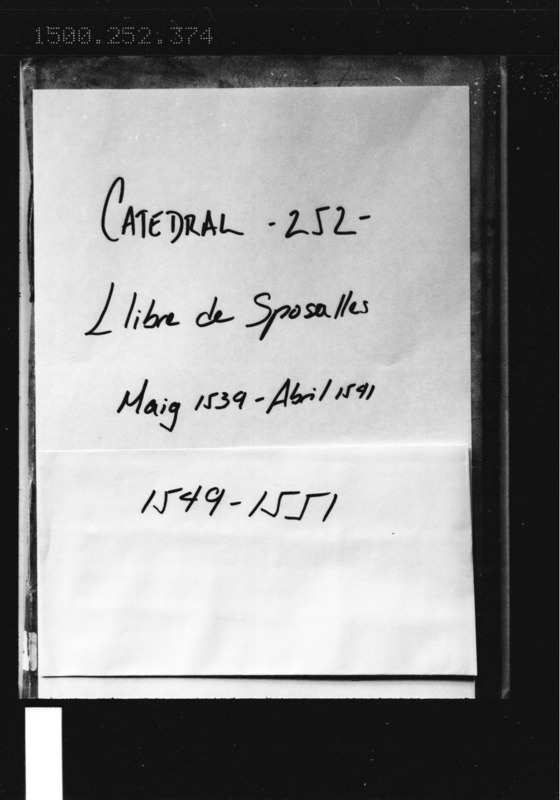 1500.252.374
CATEDRAL -252-
Llibre de Sposalles
Maig 1539-Abril 1541
1549-1551